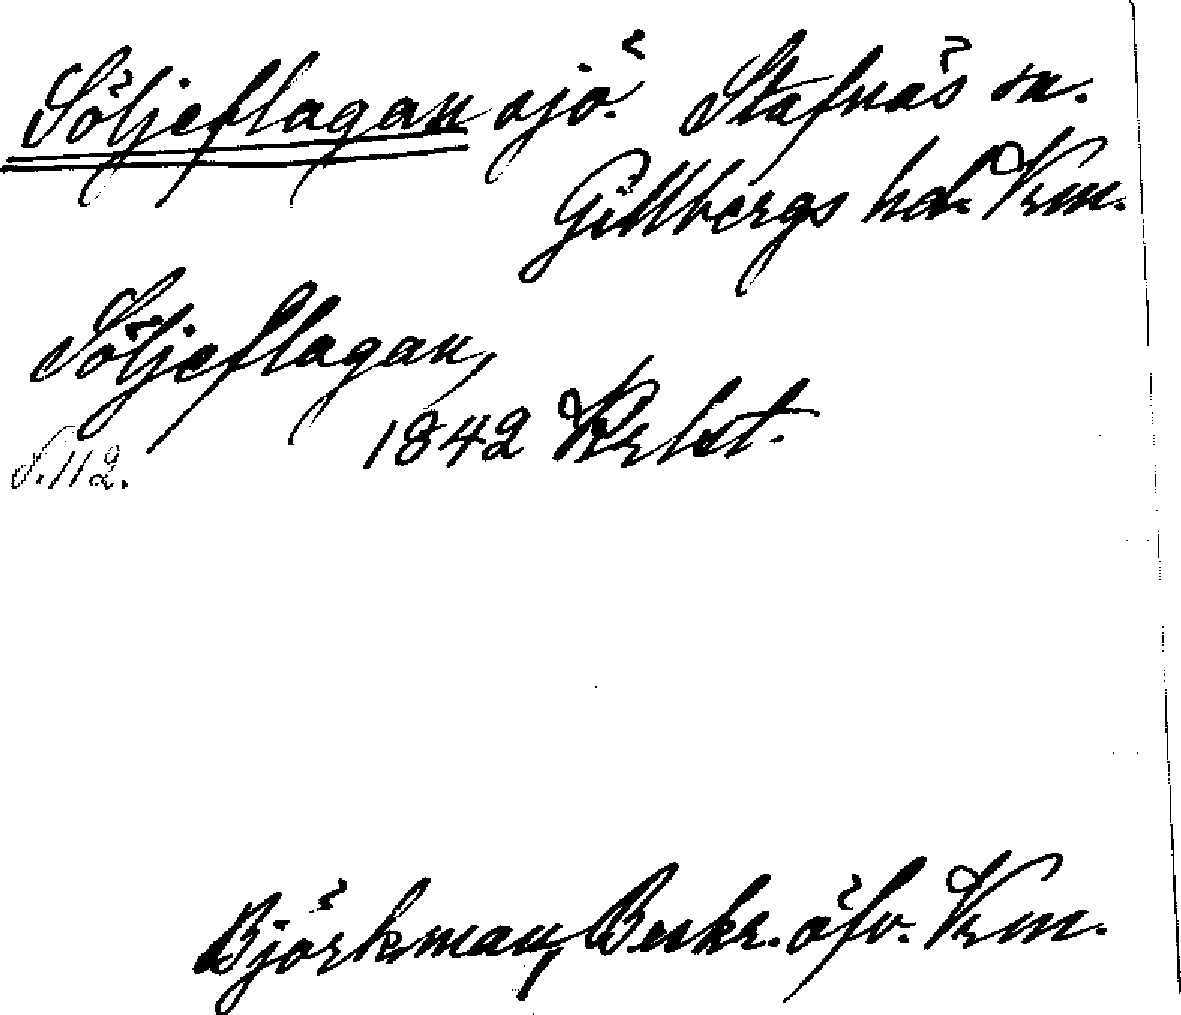 Söljeflagan sjö. Stafnäs sn.
Gillbergs hd. Vrm.
Söljeflagan,
1842
S. 112.
Björkman, Beskr. öfv. Vrm.